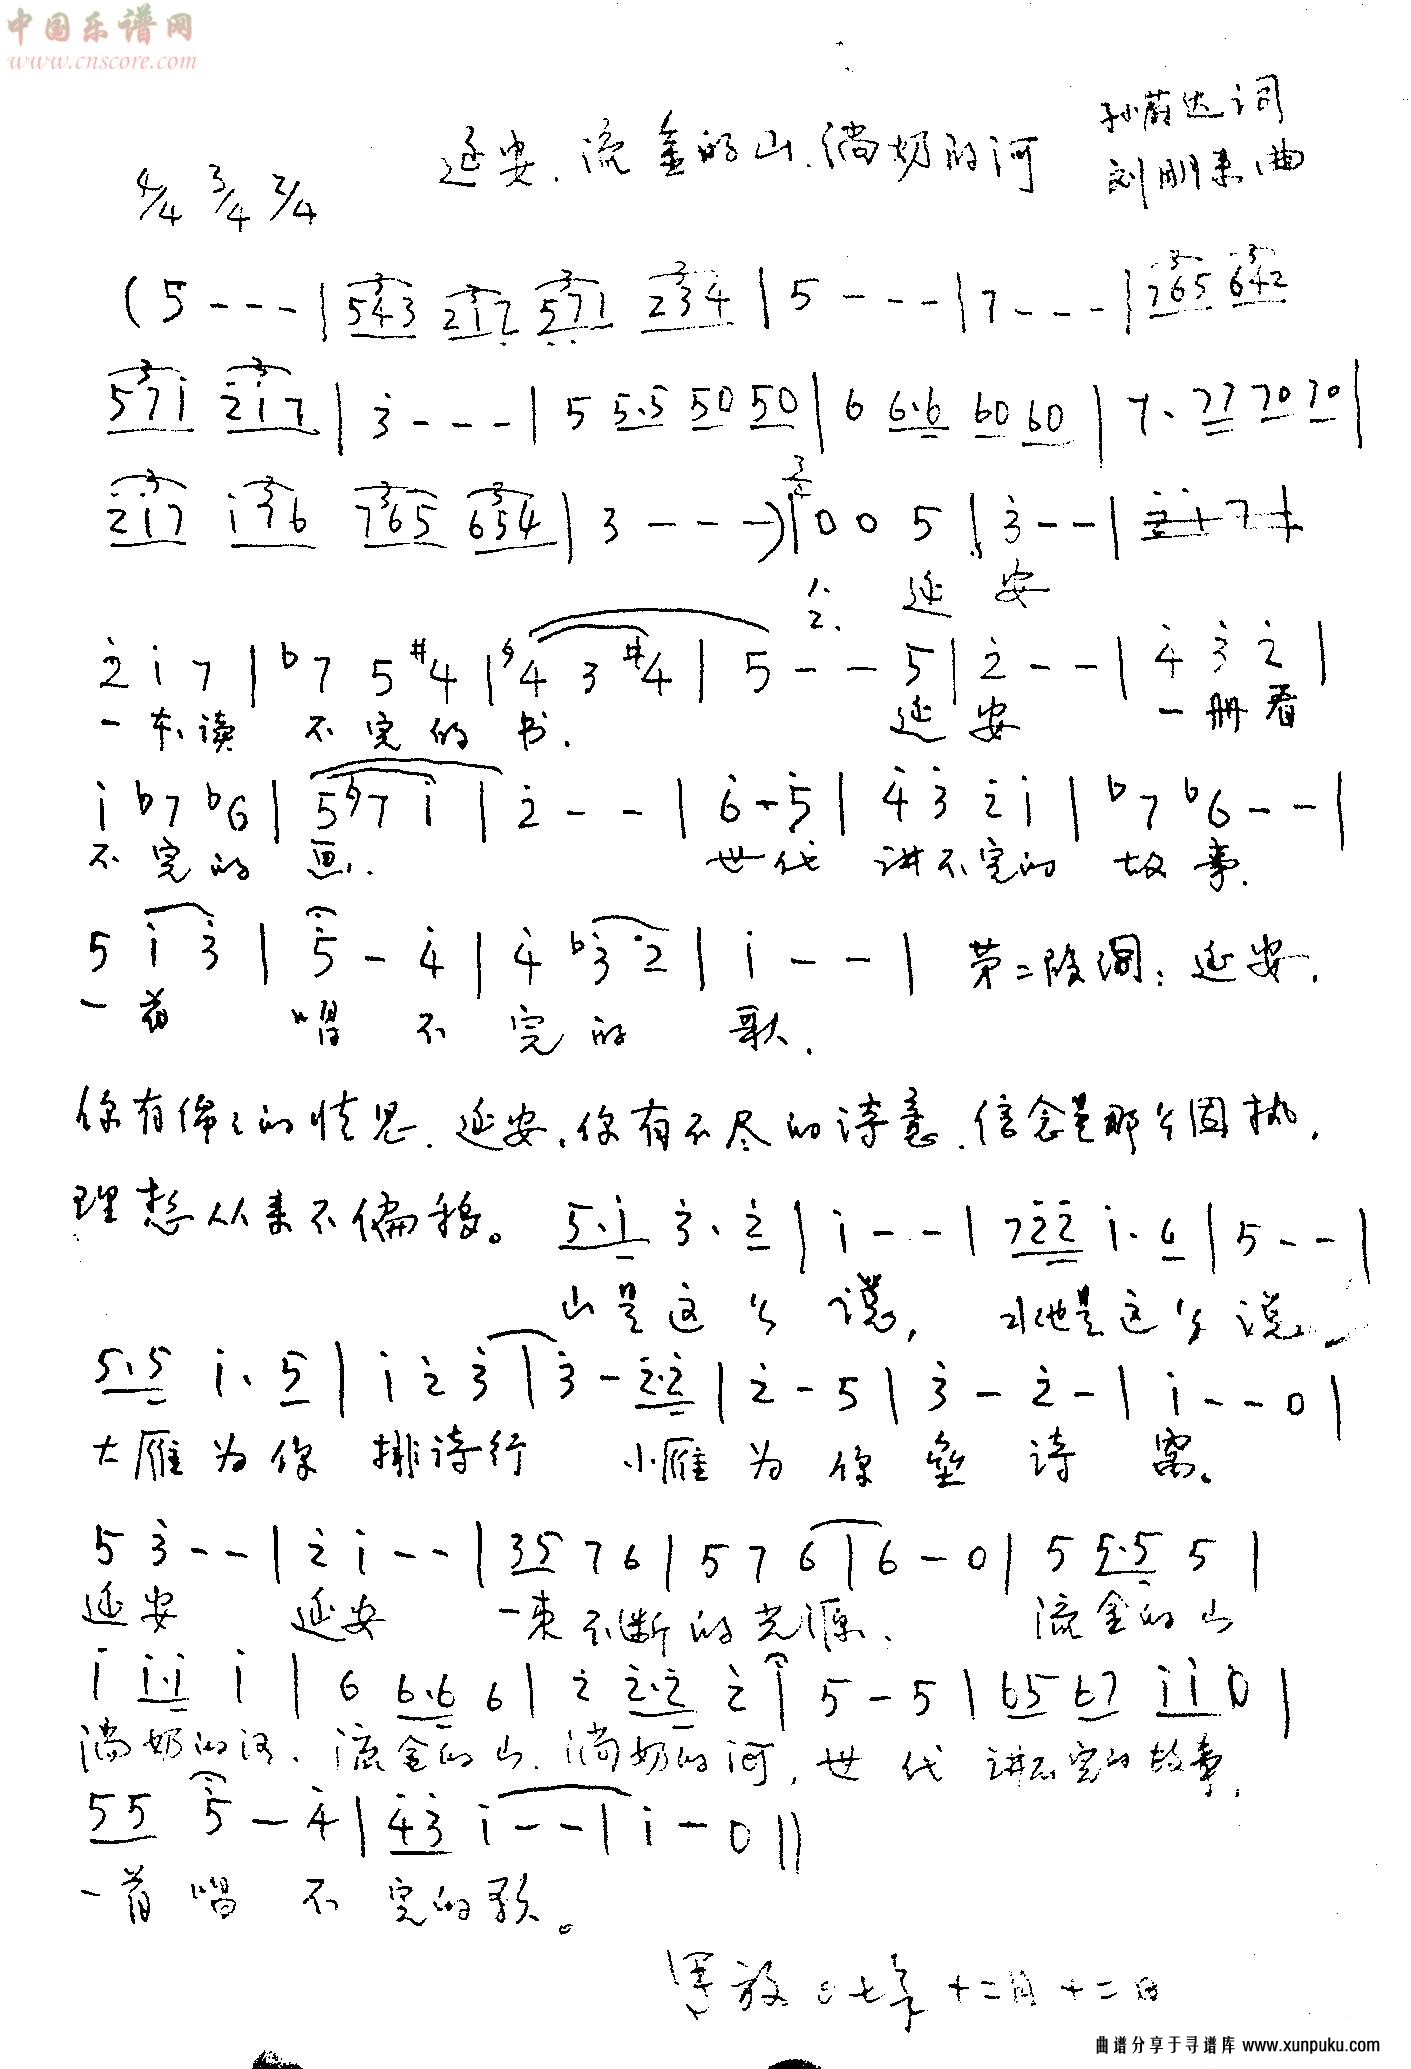 中国乐谱网
www.cnscore.com
延安、流金的山、淌奶的河
孙蔚达词
刘朋来曲
4/4 3/4 2/4
(5 - - - | 543 217 571 234 | 5 - - - | 7 - - - | 765 642
571 217 | 3 - - - | 5 5.5 50 50 | 6 6.6 60 60 | 7. 77 70 70 |
217 176 765 654 | 3 - - -) | 3/4 0 0 5 | 3 - - |
1. 2. 延 安
2 1 7 | b7 5 #4 | 4 3 #4 | 5 - - 5 | 2 - - | 4 3 2 |
一本读 不完的 书. 延 安 一册看
1 b7 b6 | 5 7 1 | 2 - - | 6 - 5 | 4 3 2 1 | b7 b6 - - |
不完的 画. 世代 讲不完的 故事.
5 1 3 | 5 - 4 | 4 b3 2 | 1 - - | 第二段词：延安，
一首 唱 不 完的 歌.
你有绵绵的情思、延安，你有不尽的诗意，信念是那么固执，
理想从来不偏移。 5.1 3. 2 | 1 - - | 722 1. 6 | 5 - - |
山是这么说， 水也是这么说
5.5 1. 5 | 1 2 3 | 3 - 2.2 | 2 - 5 | 3 - 2 - | 1 - - 0 |
大雁为你 排诗行 小雁为你垒诗窝。
5 3 - - | 2 1 - - | 35 7 6 | 5 7 6 | 6 - 0 | 5 5.5 5 |
延安 延安 一束不断的光源、 流金的山
1 1.1 1 | 6 6.6 6 | 2 2.2 2 | 5 - 5 | 65 67 11 0 |
淌奶的河、流金的山、淌奶的河，世代 讲不完的故事，
55 5 - 4 | 43 1 - - | 1 - 0 ||
一首唱 不 完的歌。
放 〇七年十二月十二日
曲谱分享于寻谱库 www.xunpuku.com